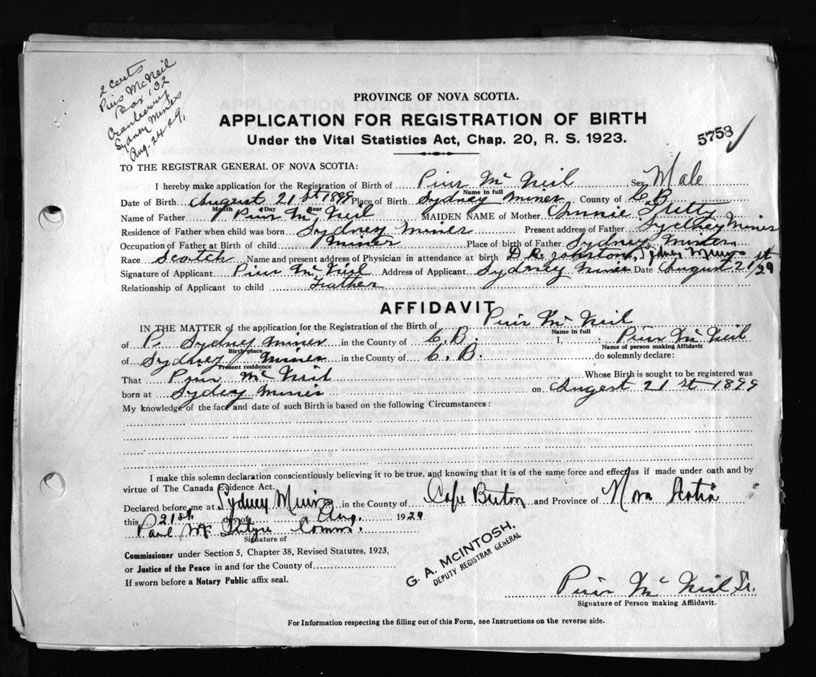 2 Cents
Pius McNeil
Box 132
Cranberry
Sydney Mines
Aug. 24-29,
PROVINCE OF NOVA SCOTIA.
APPLICATION FOR REGISTRATION OF BIRTH
Under the Vital Statistics Act, Chap. 20, R. S. 1923.
5753
TO THE REGISTRAR GENERAL OF NOVA SCOTIA:
I hereby make application for the Registration of Birth of Pius McNeil Sex Male
Name in full
Date of Birth August 21st 1899 Place of Birth Sydney Mines County of C.B.
Month Day Hour
Name of Father Pius McNeil MAIDEN NAME of Mother Annie
Residence of Father when child was born Sydney Mines Present address of Father Sydney Mines
Occupation of Father at Birth of child Miner Place of birth of Father Sydney Mines
Race Scotch Name and present address of Physician in attendance at birth D. R. Johnstone, Sydney Mines
Signature of Applicant Pius McNeil Address of Applicant Sydney Mines Date August 21st/29
Relationship of Applicant to child Father
AFFIDAVIT
IN THE MATTER of the application for the Registration of the Birth of Pius McNeil
Name in full
of P. Sydney Mines in the County of C.B. I, Pius McNeil
Birth place Name of person making Affidavit
of Sydney Mines in the County of C.B. do solemnly declare:
Present residence
That Pius McNeil Whose Birth is sought to be registered was
born at Sydey Mines on Augest 21st 1899
My knowledge of the fact and date of such Birth is based on the following Circumstances:
I make this solemn declaration conscientiously believing it to be true, and knowing that it is of the same force and effect as if made under oath and by
virtue of The Canada Evidence Act.
Declared before me at Sydney Mines in the County of Cape Breton and Province of Nova Scotia
this 21st. Aug. 1929
Paul McIntyre Comms.
Signature of
Commissioner under Section 5, Chapter 38, Revised Statutes, 1923,
or Justice of the Peace in and for the County of
If sworn before a Notary Public affix seal.
G. A. MCINTOSH,
DEPUTY REGISTRAR GENERAL
Pius McNeil Sr.
Signature of Person making Affidavit.
For Information respecting the filling out of this Form, see Instructions on the reverse side.